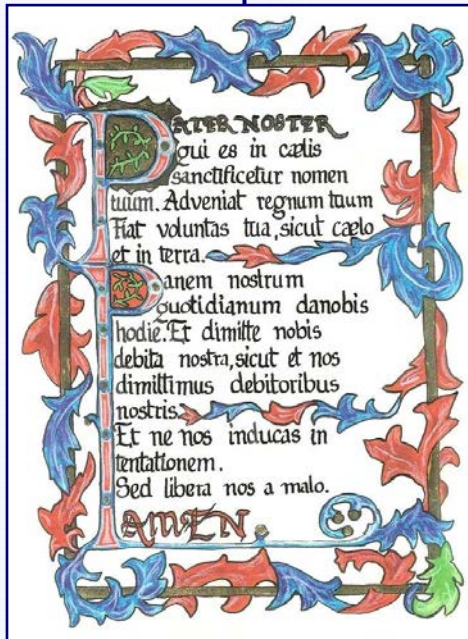 PATER NOSTER
qui es in cælis
sanctificetur nomen
tuum. Adveniat regnum tuum
Fiat voluntas tua, sicut cælo
et in terra.
Panem nostrum
quotidianum danobis
hodie. Et dimitte nobis
debita nostra, sicut et nos
dimittimus debitoribus
nostris.
Et ne nos inducas in
tentationem.
Sed libera nos a malo.
AMEN